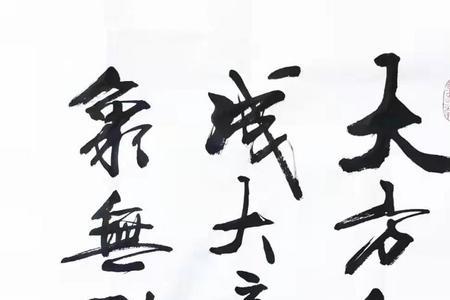 大方
成大
象無